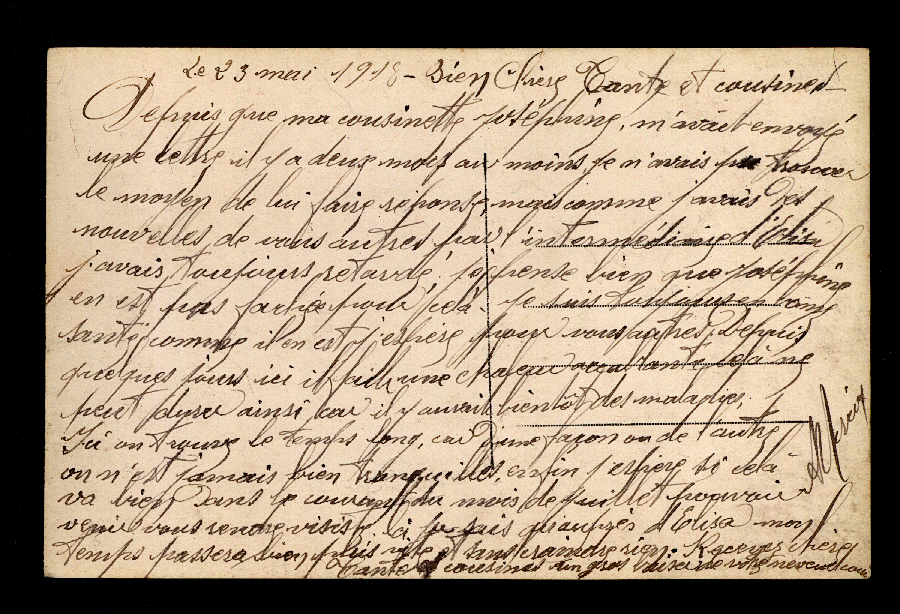 Le 23 mai 1918 - Bien Chère Tante et cousines
Depuis que ma cousinette Joséphine, m'avait envoyé
une lettre il y a deux mois au moins, je n'avais pu trouver
le moyen de lui faire réponse, mais comme j'avais des
nouvelles, de vous autres, par l'intermédiaire d'Elisa
j'avais, toujours retardé. je pense bien que Joséphine
en est pas fachée pour celà. je suis toujours en bonne
santé comme il en est j'espère pour vous autres; Depuis
quelques jours ici il fait, une chaleur celà ne
peut durer ainsi car il y aurait bientôt des maladies,
Ici on trouve le temps long, car d'une façon ou de l'autre
on n'est jamais bien tranquilles, enfin j'espère si celà
va bien dans le courant du mois de juillet pouvoir
venir vous rendre visite, là je suis qu'auprès d'Elisa mon
temps passera bien plus vite et sans craindre rien. Recevez chères
Tante et cousines un gros baiser de votre neveu et cousin